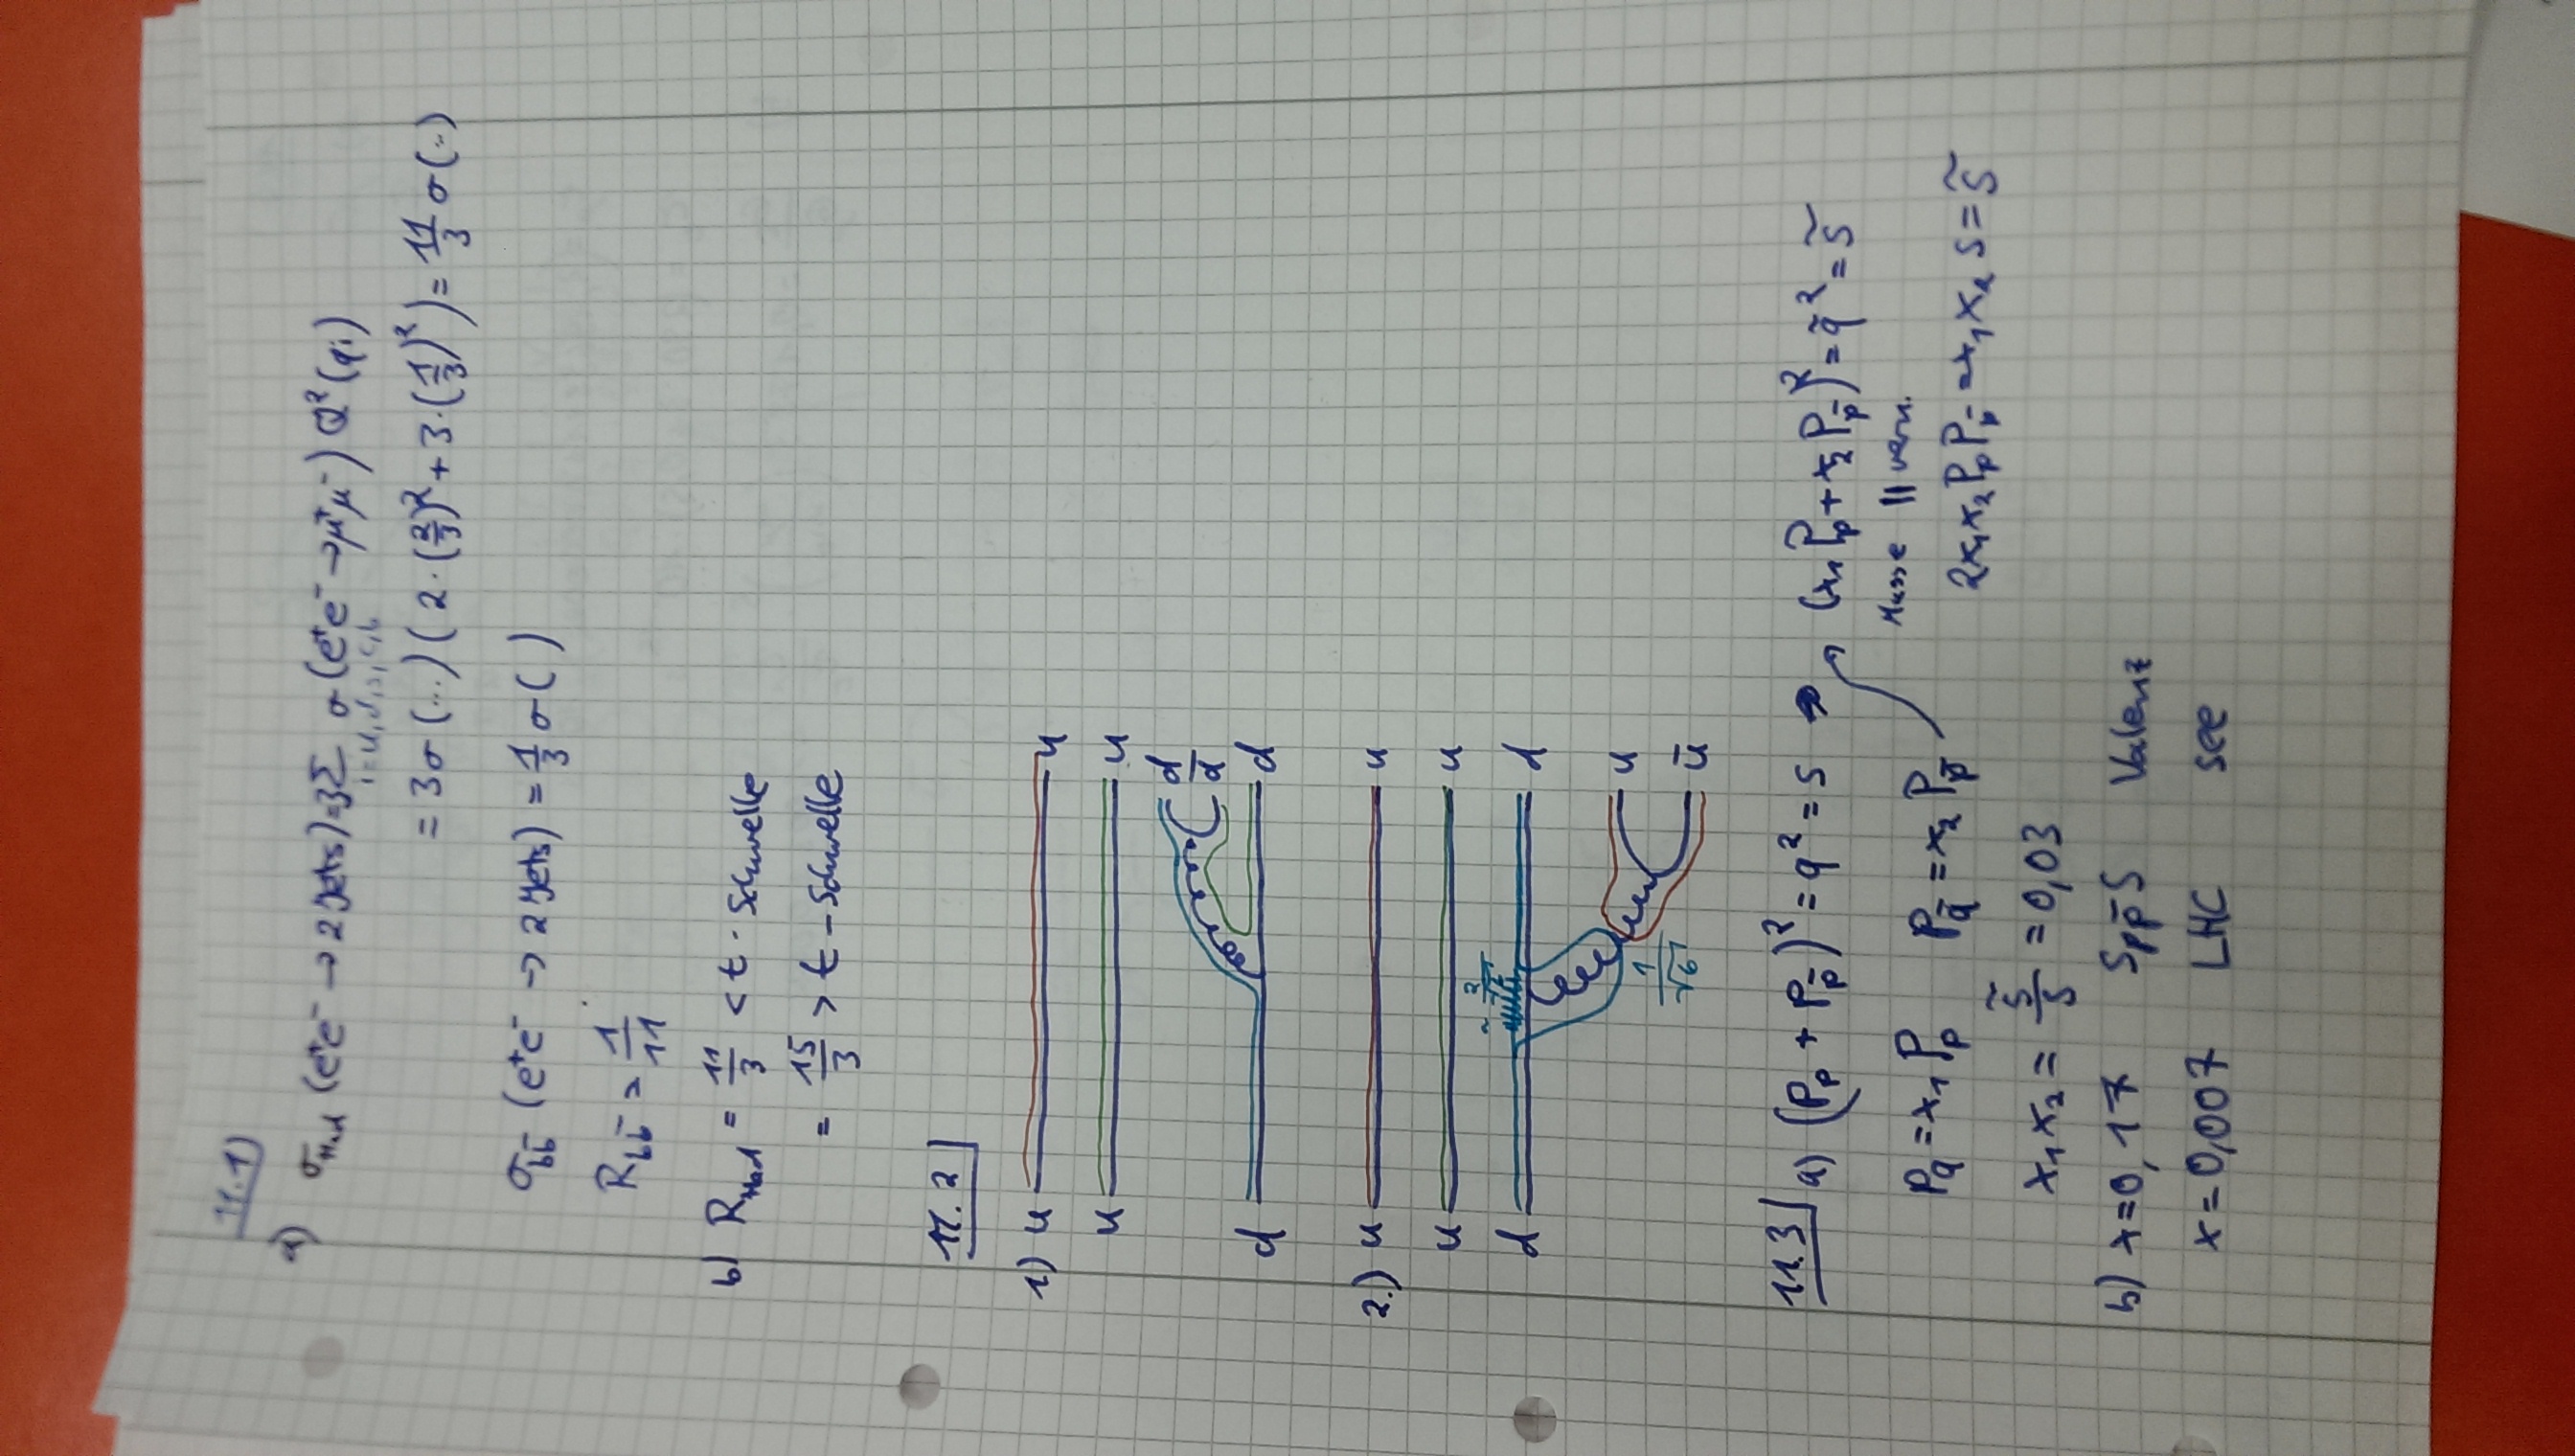 11.1)
a) σ_Had (e⁺e⁻ → 2 Jets) = 3Σ σ (e⁺e⁻ → μ⁺μ⁻) Q²(qi)
i=u,d,s,c,b
= 3σ(...) (2·(2/3)² + 3·(1/3)²) = 11/3 σ(..)
σ_bb̄ (e⁺e⁻ → 2 Jets) = 1/3 σ( )
R_bb̄ = 1/11
b) R_Had = 11/3 < t-Schwelle
= 15/3 > t-Schwelle
11.2
1) u u
u u
d
d̄
d d
2.) u u
u u
d d
1/√6
u
ū
11.3 a) (P_p + P_p̄)² = q² = s → (x₁P_p + x₂P_p̄)² = q̃² = s̃
P_q = x₁P_p P_q̄ = x₂P_p̄ Masse || vern.
2x₁x₂P_pP_p̄ = x₁x₂s = s̃
x₁x₂ = s̃/s = 0,03
b) x=0,17 Spp̄S Valenz
x=0,007 LHC See